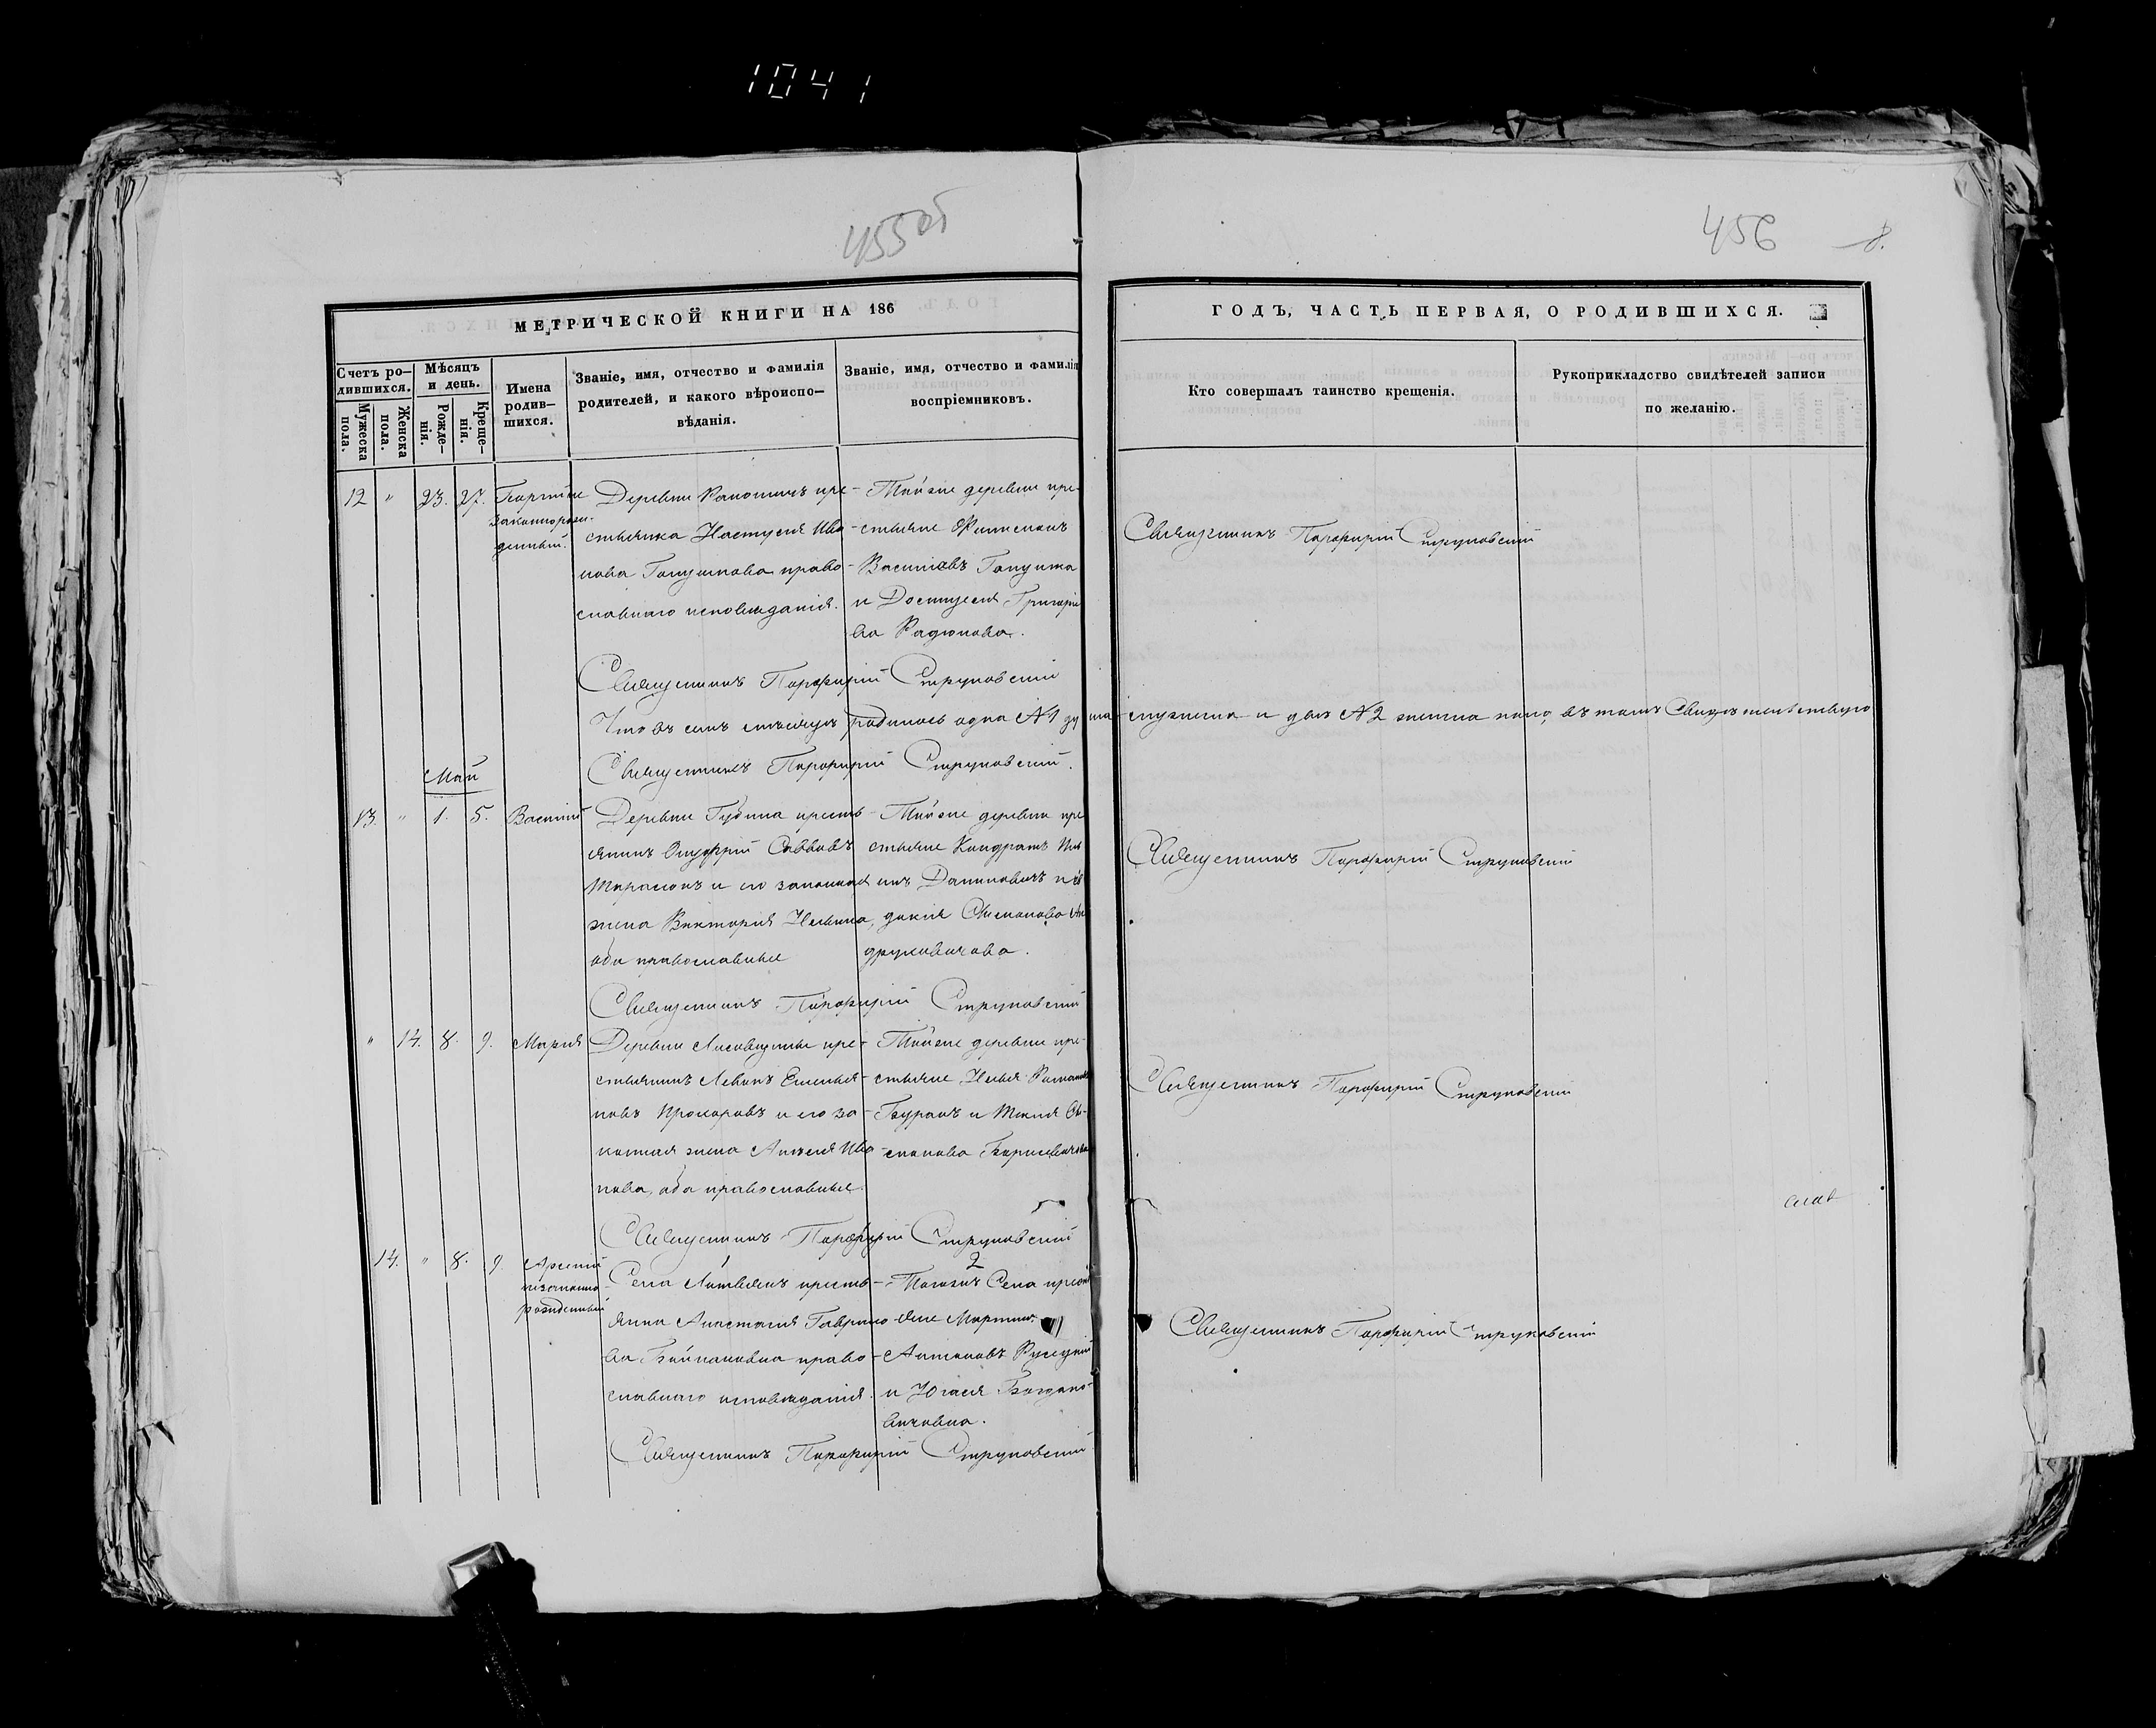 1041
455 об
456
8.
МЕТРИЧЕСКОЙ КНИГИ НА 186
ГОДЪ, ЧАСТЬ ПЕРВАЯ, О РОДИВШИХСЯ.
Счетъ ро-
дившихся.
Мужеска
пола.
Женска
пола.
Мѣсяцъ
и день.
Рожде-
нія.
Креще-
нія.
Имена
родив-
шихся.
Званіе, имя, отчество и фамилія
родителей, и какого вѣроиспо-
вѣданія.
Званіе, имя, отчество и фамилія
воспріемниковъ.
Кто совершалъ таинство крещенія.
Рукоприкладство свидѣтелей записи
по желанію.
12 " 23. 27. Георгій не
законнорож-
денный.
Деревни кре-
стьянка Настусія Ива-
нова право-
славнаго исповѣданія.
Той же деревни кре-
стьяне
Васильевъ
и Григорье
ва Радюкова.
Священникъ Порфирій Струковскій
Священникъ Порфирій Струковскій
Что въ семъ мѣсяцѣ родилось одна № 1 душа мужеска и двѣ № 2 женска пола, въ томъ свидѣтельствую
Священникъ Порфирій Струковскій.
Май
13. " 1. 5. Василій
Деревни Губина кресть-
янинъ Онуфрій Савовъ
Тарасюкъ и его законная
жена Викторія Ильина,
оба православные
Той же деревни кре
стьяне Кондратъ
Даниловичъ и Ев
докія Симонова Ан
друковичова.
Священникъ Порфирій Струковскій
Священникъ Порфирій Струковскій
" 14. 8. 9. Марія
Деревни кре-
стьянинъ Левонъ Емелья-
новъ Прокоповъ и его за-
конная жена Анжеля Ива-
нова, оба православные.
Той же деревни кре-
стьяне Илья
и Текля
Борисевичова
Священникъ Порфирій Струковскій
Священникъ Порфирій Струковскій
14. " 8. 9. Арсеній
незаконно-
рожденный
Села кресть-
янка Анастасія Гаврило
ва право-
славнаго исповѣданія.
2
Тогожъ Села крестъ
яне Мартинъ
Антоновъ Русецкій
и Югася Богдано-
вичовна.
Священникъ Порфирій Струковскій
Священникъ Порфирій Струковскій